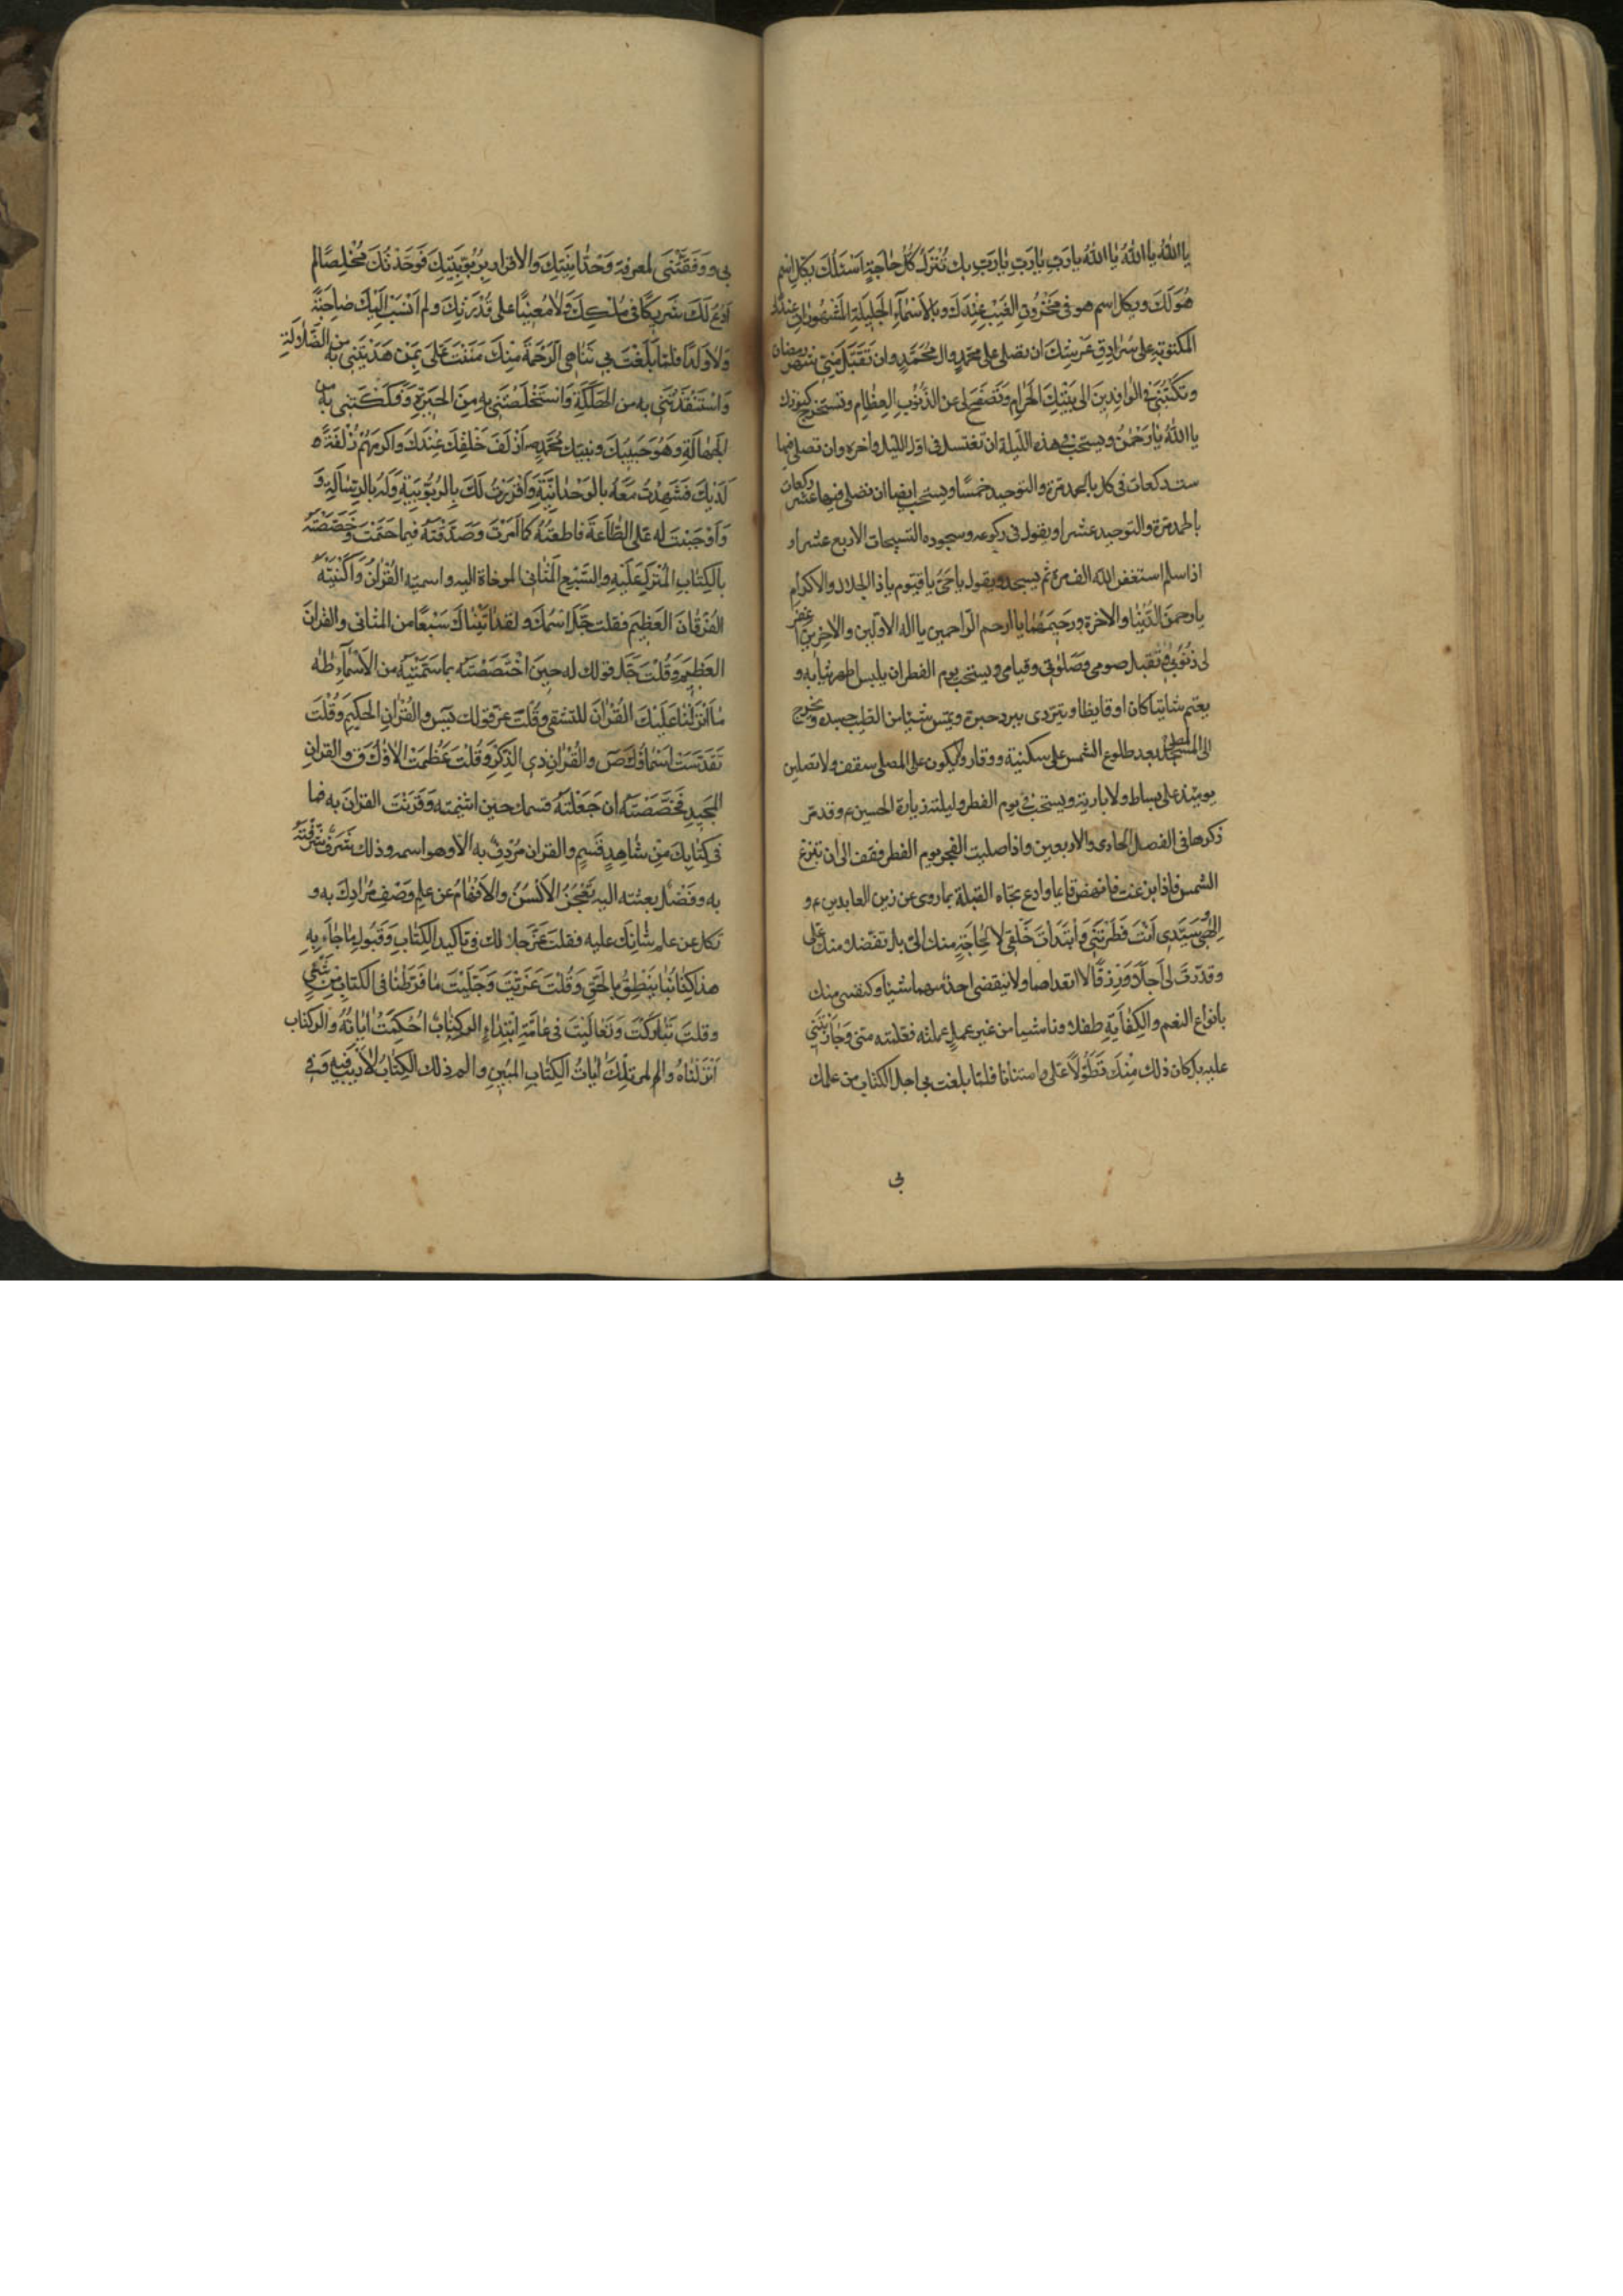 يا اللّٰهُ يا اللّٰهُ يا اللّٰهُ يا رَبِّ يا رَبِّ يا رَبِّ بك تُنْزَلُ كُلُّ حاجَةٍ اَسْئَلُكَ بِكُلِّ اسْمٍ
هُوَ لَكَ وبكل اسم هو فى مَخْزُونِ الغَيْبِ عِنْدَكَ وبالاَسْمآءِ الجَلِيلَةِ المَشْهُوراتِ عِندَكَ
المكتوبةِ على سُرادِقِ عَرْشِكَ ان تصلى على محمّدٍ وال مُحَمَّدٍ وان تَقَبَّلَ مِنِّى شهر رمضان
وتَكْتُبَنِى فى الوافِدِينَ الى بَيْتِكَ الحَرامِ وَتَصْفَحَ لى عن الذُّنُوبِ العِظامِ وتستخرج كنوزك
يا اللّٰهُ يا رَحْمٰنُ ويستحب فى هذه اللّيلة ان تغتسل فى اول الليل واخره وان تصلى فيها
ست ركعات فى كل بالحمد مرة والتوحيد خمسًا ويستحب ايضا ان تصلى فيها عشر ركعات
بالحمد مرة والتوحيد عشرا ويقول فى ركوعه وسجوده التسبيحات الاربع عشرا و
اذا سلم استغفر اللّٰه الف مرة ثم يسجد ويقول يا حَىُّ يا قيّوم يا ذا الجلال والاكرام
يا رحمنَ الدُّنيا والاخرة ورحيمَهُما يا ارحم الرّاحمين يا اله الاوّلين والآخرين اغفر
لى ذنُوبى وتقبّل صومى وصَلٰوتى وقيامى ويستحب يوم الفطر ان يلبس اطهر ثيابه و
يعتم شاتيا كان او قايظا ويتردى ببرد حبرة ويمسّ شيئا من الطيب جسده ويخرج
الى المصلى بعد طلوع الشمس على سكينة ووقار ولا يكون على المصلى سقف ولا تصلين
يومئذ على بساط ولا بارية ويستحب فى يوم الفطر وليلته زيارة الحسين ع وقد مر
ذكرها فى الفصل الحادى والاربعين واذا صليت الفجر يوم الفطر فقف الى ان تبزغ
الشمس فاذا بزغت فانهض قايما وادع تجاه القبلة بما روى عن زين العابدين ع و
اِلٰهى وسَيِّدى اَنْتَ فَطَرْتَنِى وَابْتَدَأتَ خَلْقى لا لِحاجَةٍ منك الىّ بل تفضّلا منك علىّ
وقدّرتَ لى اَجَلاً ورِزْقًا لا اتعداهما ولا ينقصنى احدٌ منهما شيئا وكنفتنى منك
بانواع النعم والكِفايَةِ طفلا وناشيا من غير عملٍ عملته فعلمته منى وَجازَيْتَنِى
عليه بل كان ذلك مِنْكَ تَطَوُّلاً عَلَىَّ وامتنانا فلما بلغت بى اجل الكتاب من علمك
بى
بى ووَفَّقْتَنِى لمعرفة وَحْدانِيَّتِكَ والاقرار بِرُبُوبِيَّتِكَ فَوَحَّدْتُكَ مُخْلِصًا لم
اَدْعُ لَكَ شَرِيكًا فى مُلْكِكَ وَلا مُعِينًا على قُدْرَتِكَ ولم اَنْسِبْ اِلَيْكَ صاحِبَةً
وَلا وَلَدًا فلما بَلَغْتَ بى تَناهِى الرَّحْمَةِ مِنْكَ مَنَنْتَ عَلَىَّ بِمَنْ هَدَيْتَنِى به من الضَّلالَةِ
وَاسْتَنْقَذْتَنِى به من الهَلَكَةِ وَاسْتَخْلَصْتَنِى بهِ مِنَ الحَيْرَةِ وَفَكَكْتَنِى به من
الجَهالَةِ وَهُوَ حَبِيبُكَ ونبيّك مُحَمَّدٍ ص اَزْلَفُ خَلْقِكَ عِنْدَكَ وَاَكْرَمُهُمْ زُلْفَةً
لَدَيْكَ فَشَهِدْتُ مَعَهُ بِالوَحْدانِيَّةِ وَاَقْرَرْتُ لَكَ بِالرُّبُوبِيَّةِ وَلَهُ بالرِّسالَةِ وَ
وَاَوْجَبْتَ له عَلَىَّ الطّاعَةَ فاطعتُهُ كما اَمَرْتَ وَصَدَّقْتُهُ فيما حَتَمْتَ وخَصَصْتَهُ
بالكِتابِ المُنْزَلِ عَلَيْهِ والسَّبْعِ المَثانِى الموحاة اليه واسميته القُرْآنَ وَاَكْنَيْتَهُ
الفُرْقانَ العَظِيمَ فقلت جَلَّ اسْمُكَ ولقد اٰتَيْناكَ سَبْعًا من المَثانى والقرانَ
العَظِيمَ وَقُلْتَ جَلَّ قولك له حِينَ اخْتَصَصْتَهُ بما سَمَّيْتَهُ من الاَسْمآءِ طٰهٰ
ما اَنْزَلْنا عَلَيْكَ القُرْآنَ لتشقى وقُلْتَ عزّ قولك يٰسٓ والقُرْآنِ الحَكِيمِ وَقُلْتَ
تَقَدَّسَتْ اَسْماؤُكَ صٓ والقُرْآنِ ذى الذِّكْرِ وَقُلْتَ عَظُمَتْ الاؤك قٓ والقرانِ
المَجِيدِ فَخَصَّصْتَهُ ان جَعَلْتَهُ قسمك حين اسميته وَقَرَنْتَ القرانَ به فما
فى كِتابِكَ مِنْ شاهِدِ قَسَمٍ والقران مُرْدَفٌ به الاّ وهو اسمه وذلك شَرَفٌ شَرَّفْتَهُ
به وفَضْلٌ بعثته اليه تَعْجَزُ الاَلْسُنُ والاَفْهامُ عن علم وَصْفِ مُرادِكَ به و
تكل عن علم ثَنائِكَ عليه فقلت عَزَّ جلالك فى تاكيد الكِتابِ وَقَبُولِ ما جاءَ بِهِ
هذا كِتابُنا يَنْطِقُ بالحَقِّ وَقُلْتَ عَزَّيْتَ وَجَلَّيْتَ ما فَرَّطْنا فى الكتاب مِنْ شَىْءٍ
وقلتَ تَبارَكْتَ وَتَعالَيْتَ فى عامّةِ ابْتِداءِ الر كِتابٌ اُحْكِمَتْ اٰياتُهُ والر كتاب
اَنْزَلْناهُ والمر تِلْكَ اٰياتُ الكِتابِ المُبِينِ والم ذلك الكِتابُ لا رَيْبَ فِيهِ وَفى